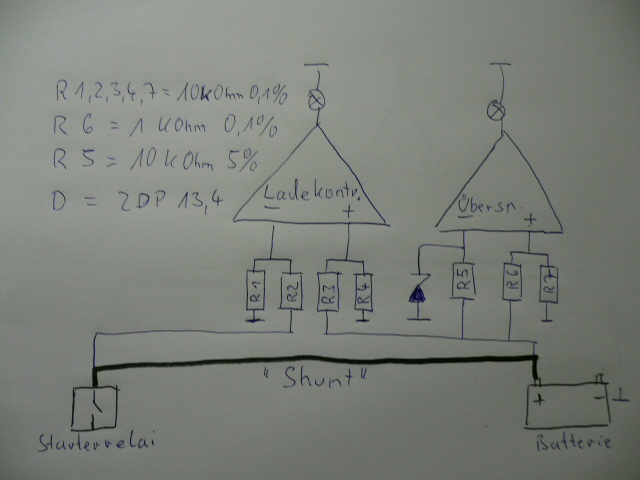 R 1,2,3,4,7 = 10kOhm 0,1%
R 6 = 1 KOhm 0,1%
R 5 = 10kOhm 5%
D = ZDP 13,4
Ladekontr.
+
Übersp.
+
R1 R2 R3 R4 R5 R6 R7
"Shunt"
+ -
Starterrelai
Batterie